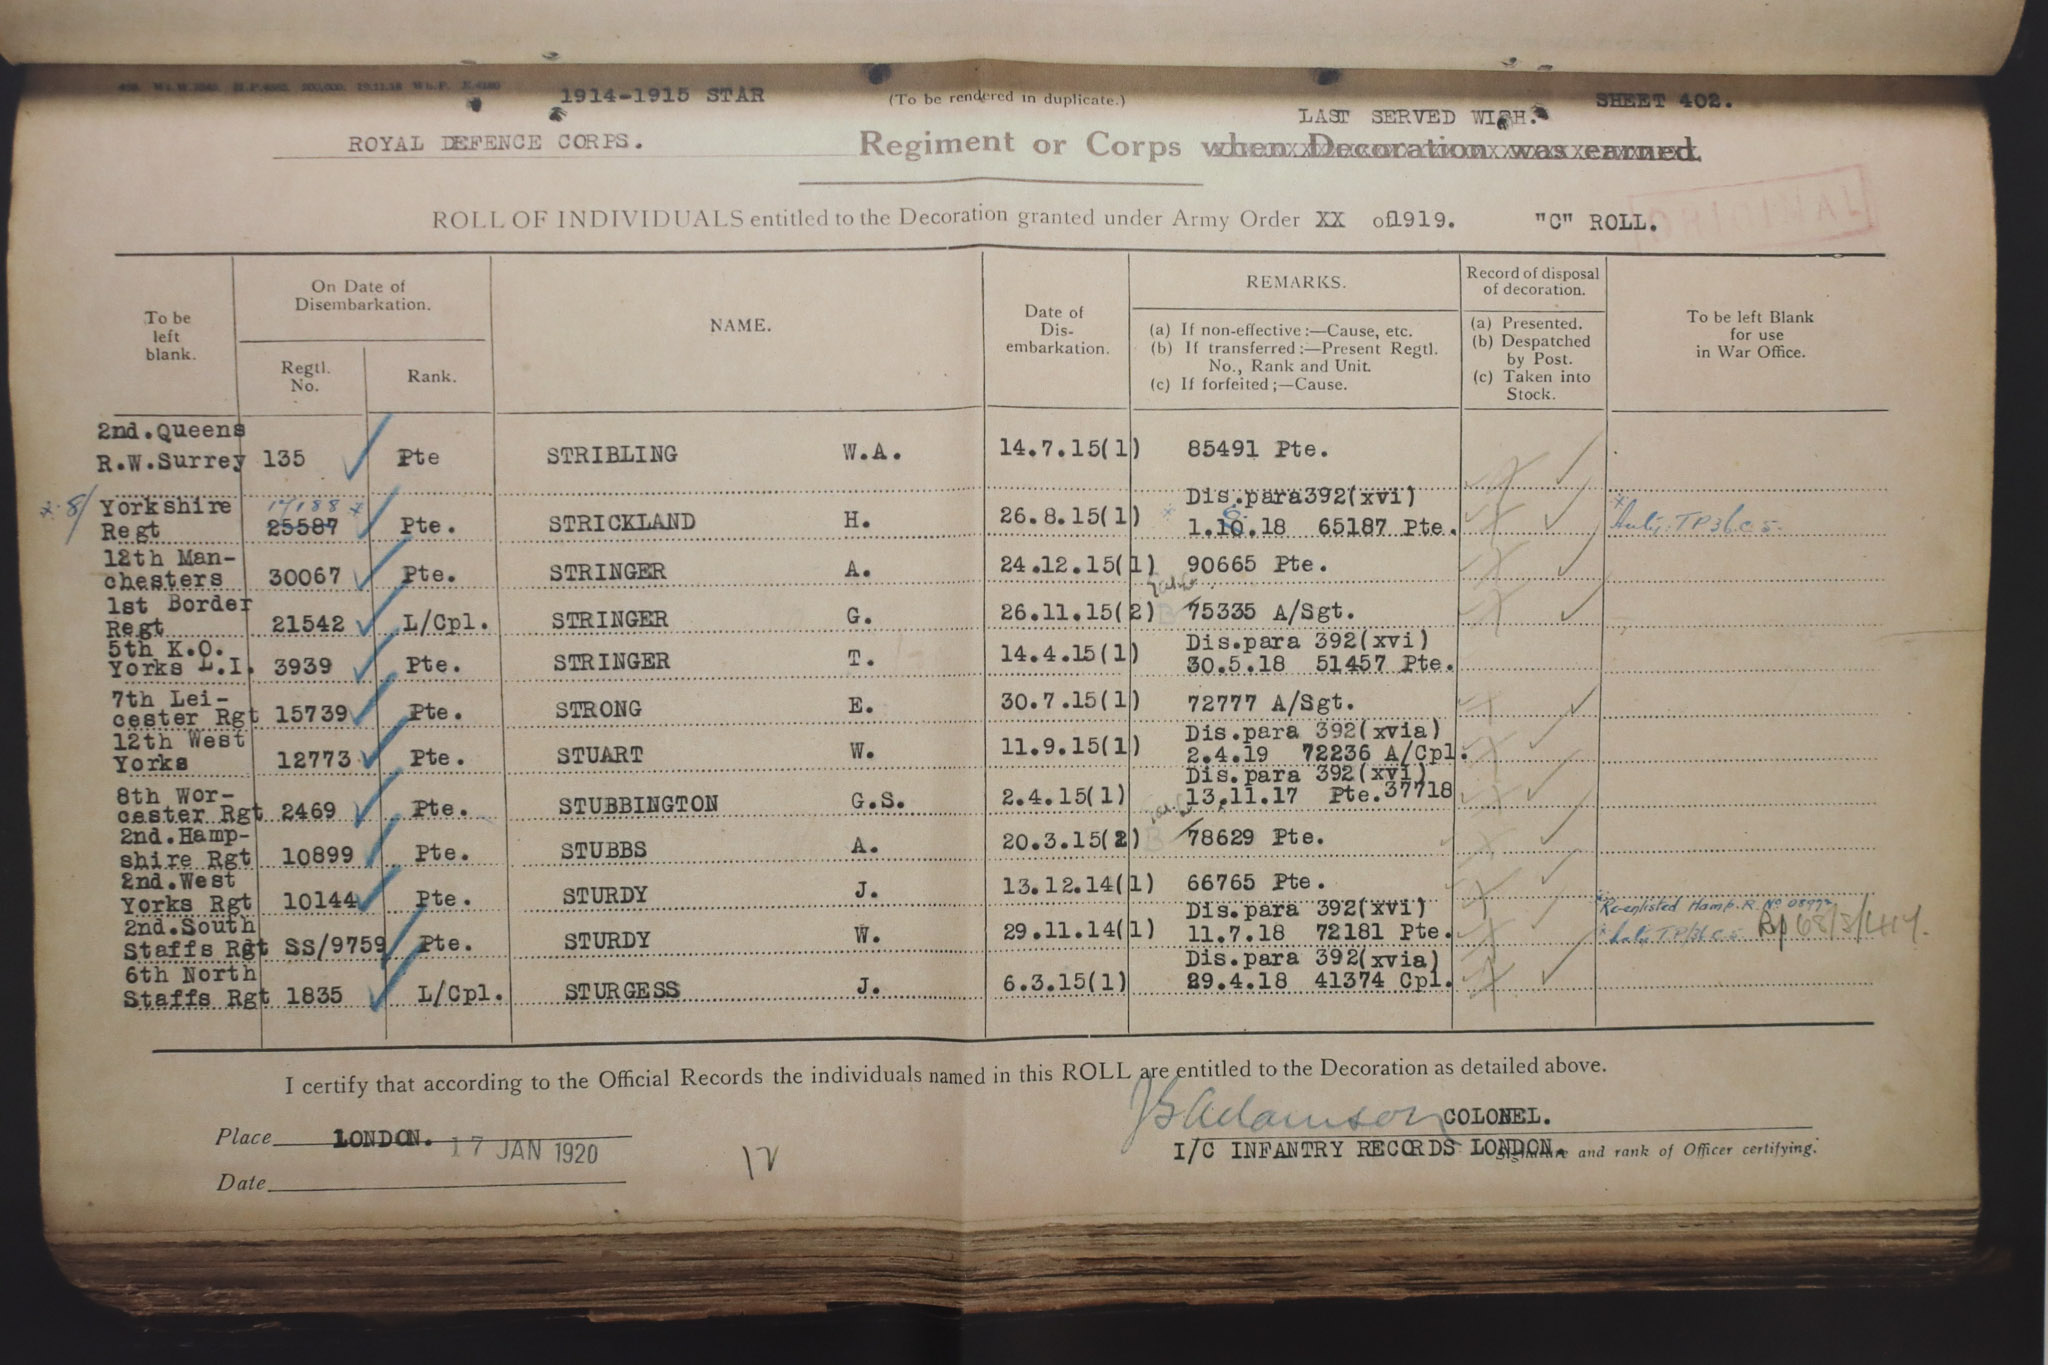 1914-1915 STAR
(To be rendered in duplicate.)
SHEET 402.
LAST SERVED WITH.
ROYAL DEFENCE CORPS.
Regiment or Corps when Decoration was earned
ROLL OF INDIVIDUALS entitled to the Decoration granted under Army Order XX of 1919. "C" ROLL.
ORIGINAL
To be left blank.
On Date of Disembarkation.
Regtl. No.
Rank.
NAME.
Date of Dis-embarkation.
REMARKS.
(a) If non-effective:—Cause, etc.
(b) If transferred:—Present Regtl. No., Rank and Unit.
(c) If forfeited;—Cause.
Record of disposal of decoration.
(a) Presented.
(b) Despatched by Post.
(c) Taken into Stock.
To be left Blank for use in War Office.
2nd.Queens
R.W.Surrey 135 Pte STRIBLING W.A. 14.7.15(1) 85491 Pte.
8/ Yorkshire Dis.para392(xvi)
Regt 25587 Pte. STRICKLAND H. 26.8.15(1) 1.10.18 65187 Pte.
12th Man-
chesters 30067 Pte. STRINGER A. 24.12.15(1) 90665 Pte.
1st Border
Regt 21542 L/Cpl. STRINGER G. 26.11.15(2) 75335 A/Sgt.
5th K.O. Dis.para 392(xvi)
Yorks L.I. 3939 Pte. STRINGER T. 14.4.15(1) 30.5.18 51457 Pte.
7th Lei-
cester Rgt 15739 Pte. STRONG E. 30.7.15(1) 72777 A/Sgt.
12th West Dis.para 392(xvia)
Yorks 12773 Pte. STUART W. 11.9.15(1) 2.4.19 72236 A/Cpl.
8th Wor- Dis.para 392(xvi)
cester Rgt 2469 Pte. STUBBINGTON G.S. 2.4.15(1) 13.11.17 Pte.37718
2nd.Hamp-
shire Rgt 10899 Pte. STUBBS A. 20.3.15(2) 78629 Pte.
2nd.West
Yorks Rgt 10144 Pte. STURDY J. 13.12.14(1) 66765 Pte.
2nd.South Dis.para 392(xvi) Re-enlisted Hamp. R. No
Staffs Rgt SS/9759 Pte. STURDY W. 29.11.14(1) 11.7.18 72181 Pte.
6th North Dis.para 392(xvia)
Staffs Rgt 1835 L/Cpl. STURGESS J. 6.3.15(1) 29.4.18 41374 Cpl.
I certify that according to the Official Records the individuals named in this ROLL are entitled to the Decoration as detailed above.
Adamson COLONEL.
Place LONDON. 17 JAN 1920
I/C INFANTRY RECORDS LONDON.
Signature and rank of Officer certifying.
Date